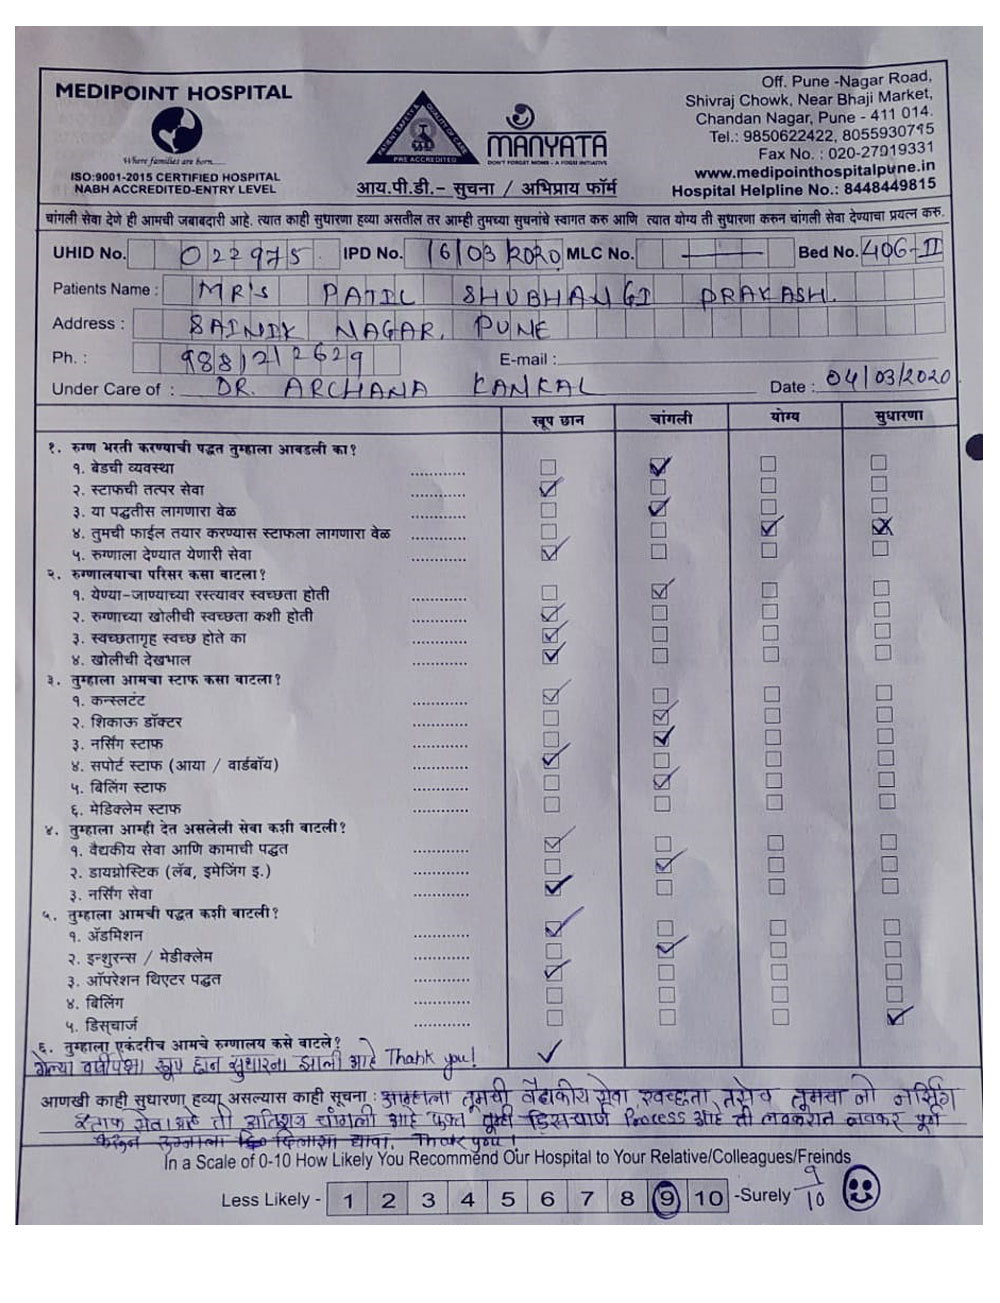 MEDIPOINT HOSPITAL
Where families are born.....
ISO:9001-2015 CERTIFIED HOSPITAL
NABH ACCREDITED-ENTRY LEVEL
PATIENT SAFETY & QUALITY OF CARE
PRE ACCREDITED
MANYATA
DON'T FORGET MOMS - A FOGSI INITIATIVE
आय.पी.डी.- सुचना / अभिप्राय फॉर्म
Off. Pune -Nagar Road,
Shivraj Chowk, Near Bhaji Market,
Chandan Nagar, Pune - 411 014.
Tel.: 9850622422, 8055930745
Fax No. : 020-27019331
www.medipointhospitalpune.in
Hospital Helpline No.: 8448449815
चांगली सेवा देणे ही आमची जबाबदारी आहे. त्यात काही सुधारणा हव्या असतील तर आम्ही तुमच्या सुचनांचे स्वागत करु आणि त्यात योग्य ती सुधारणा करुन चांगली सेवा देण्याचा प्रयत्न करु.
UHID No. 022975 IPD No. 16/03/2020 MLC No. Bed No. 406-II
Patients Name : MRS PATIL SHUBHANGI PRAKASH.
Address : SAINIK NAGAR, PUNE
Ph. : 9881212629 E-mail :
Under Care of : DR. ARCHANA KANKAL Date : 04/03/2020
खूप छान चांगली योग्य सुधारणा
१. रुग्ण भरती करण्याची पद्धत तुम्हाला आवडली का?
१. बेडची व्यवस्था ...........
२. स्टाफची तत्पर सेवा ...........
३. या पद्धतीस लागणारा वेळ ...........
४. तुमची फाईल तयार करण्यास स्टाफला लागणारा वेळ ...........
५. रुग्णाला देण्यात येणारी सेवा ...........
२. रुग्णालयाचा परिसर कसा वाटला?
१. येण्या-जाण्याच्या रस्त्यावर स्वच्छता होती ...........
२. रुग्णाच्या खोलीची स्वच्छता कशी होती ...........
३. स्वच्छतागृह स्वच्छ होते का ...........
४. खोलीची देखभाल ...........
३. तुम्हाला आमचा स्टाफ कसा वाटला?
१. कन्सल्टंट ...........
२. शिकाऊ डॉक्टर ...........
३. नर्सिंग स्टाफ ...........
४. सपोर्ट स्टाफ (आया / वार्डबॉय) ...........
५. बिलिंग स्टाफ ...........
६. मेडिक्लेम स्टाफ ...........
४. तुम्हाला आम्ही देत असलेली सेवा कशी वाटली?
१. वैद्यकीय सेवा आणि कामाची पद्धत ...........
२. डायग्नोस्टिक (लॅब, इमेजिंग इ.) ...........
३. नर्सिंग सेवा ...........
५. तुम्हाला आमची पद्धत कशी वाटली?
१. ॲडमिशन ...........
२. इन्शुरन्स / मेडीक्लेम ...........
३. ऑपरेशन थिएटर पद्धत ...........
४. बिलिंग ...........
५. डिस्चार्ज ...........
६. तुम्हाला एकंदरीच आमचे रुग्णालय कसे वाटले?
गेल्या वर्षीपेक्षा खूप छान सुधारना झाली आहे Thank you!
आणखी काही सुधारणा हव्या असल्यास काही सूचना : आम्हाला तूमची वैद्यकीय सेवा स्वच्छता तसेच तूमचा जो नर्सिंग
स्टाफ सेवा आहे ती अतिशय चांगली आहे फक्त तूम्ही डिसचार्ज Process आहे ती लवकरात लवकर पूर्ण
करून रुग्नाला दिलासा द्यावा. Thank you!
In a Scale of 0-10 How Likely You Recommend Our Hospital to Your Relative/Colleagues/Freinds
Less Likely - 1 2 3 4 5 6 7 8 9 10 -Surely 9/10